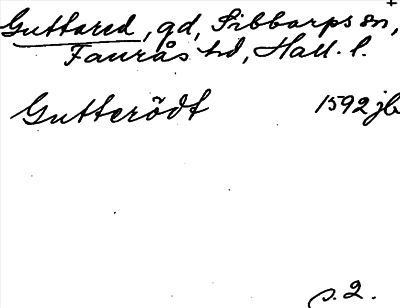 Guttared, gd, Sibbarps sn,
Faurås hd, Hall. l.
Gutterödt 1592 jb
s. 2.